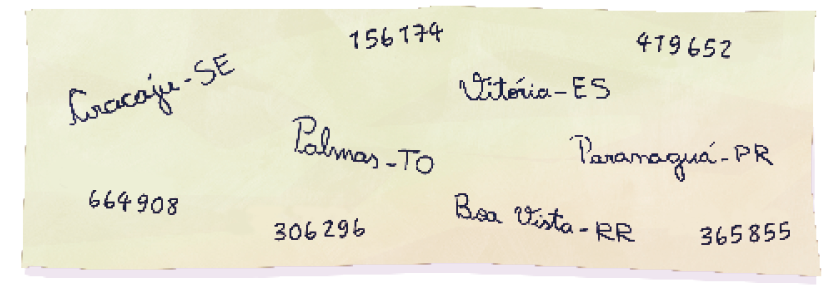 156174
419652
Aracaju-SE
Vitória-ES
Palmas-TO
Paranaguá-PR
664908
306296
Boa Vista-RR
365855